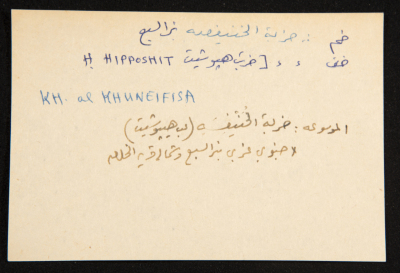 خم : خربة الخنيفسه بئر السبع
خف ، ، [خربة هيبوشيت H. HIPPOSHIT
KH. al KHUNEIFISA
الموسوعه : خربة الخنيفسه (هيبوشيت)
جنوبي غربي بئر السبع وشمال قرية الخلصه